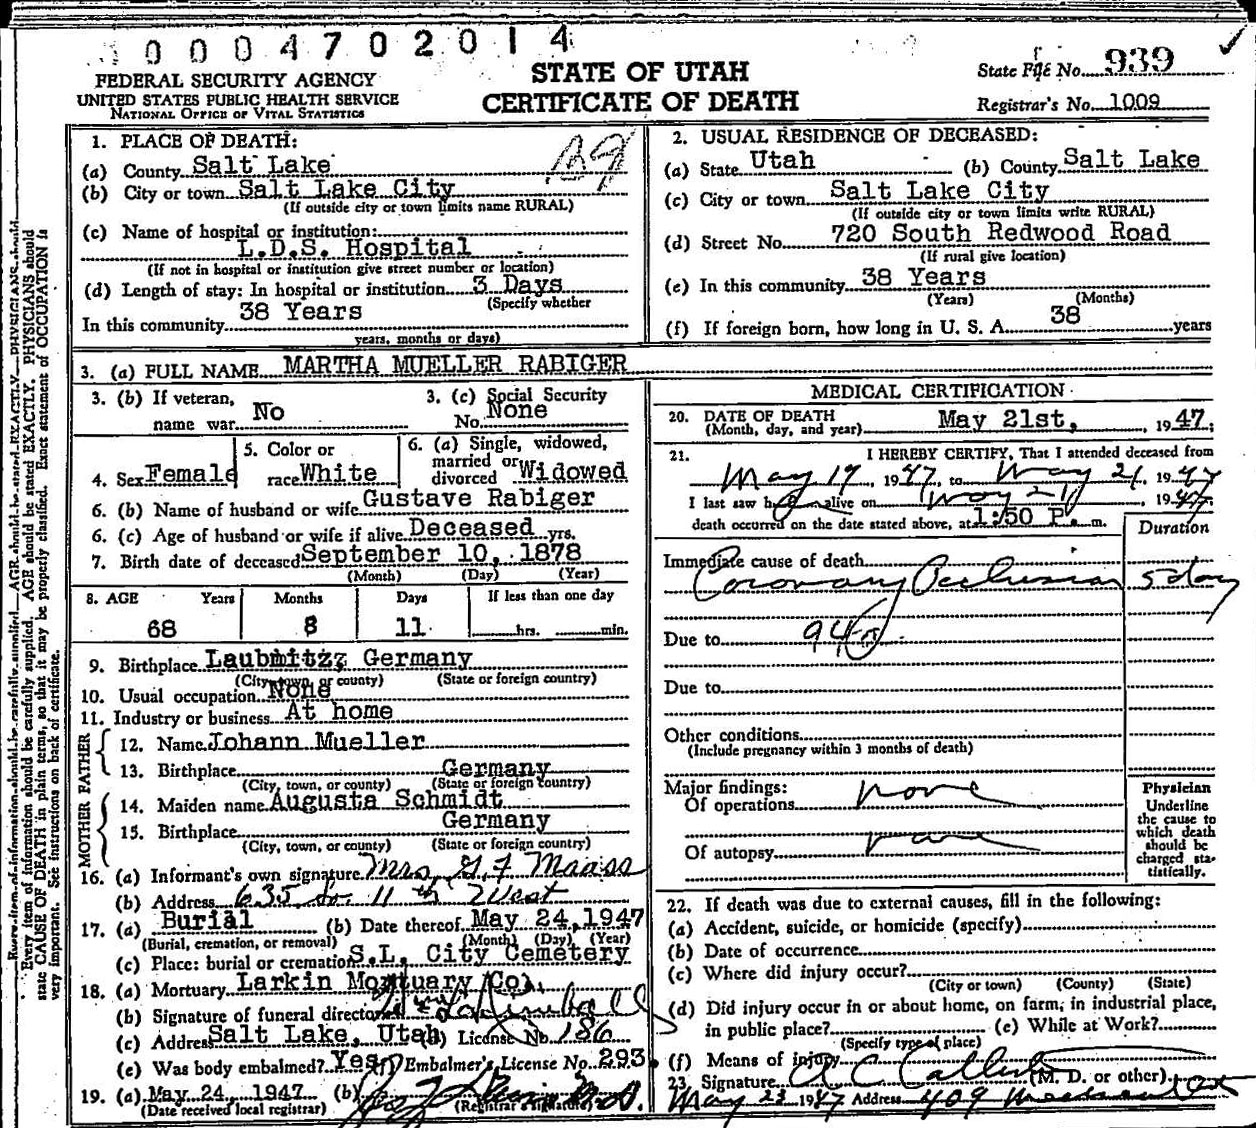 0004702014
FEDERAL SECURITY AGENCY
UNITED STATES PUBLIC HEALTH SERVICE
NATIONAL OFFICE OF VITAL STATISTICS
STATE OF UTAH
CERTIFICATE OF DEATH
State File No. 939
Registrar's No. 1009
1. PLACE OF DEATH:
(a) County Salt Lake
(b) City or town Salt Lake City
(If outside city or town limits name RURAL)
(c) Name of hospital or institution:
L.D.S. Hospital
(If not in hospital or institution give street number or location)
(d) Length of stay: In hospital or institution 3 Days
(Specify whether
In this community 38 Years
years, months or days)
2. USUAL RESIDENCE OF DECEASED:
(a) State Utah (b) County Salt Lake
(c) City or town Salt Lake City
(If outside city or town limits write RURAL)
(d) Street No. 720 South Redwood Road
(If rural give location)
(e) In this community 38 Years
(Years) (Months)
(f) If foreign born, how long in U. S. A. 38 years
3. (a) FULL NAME MARTHA MUELLER RABIGER
3. (b) If veteran, name war No
3. (c) Social Security No. None
4. Sex Female
5. Color or race White
6. (a) Single, widowed, married or divorced Widowed
6. (b) Name of husband or wife Gustave Rabiger
6. (c) Age of husband or wife if alive Deceased yrs.
7. Birth date of deceased September 10, 1878
(Month) (Day) (Year)
8. AGE Years Months Days If less than one day
68 8 11 hrs. min.
9. Birthplace Laubmitz, Germany
(City, town, or county) (State or foreign country)
10. Usual occupation None
11. Industry or business At home
FATHER
12. Name Johann Mueller
13. Birthplace Germany
(City, town, or county) (State or foreign country)
MOTHER
14. Maiden name Augusta Schmidt
15. Birthplace Germany
(City, town, or county) (State or foreign country)
16. (a) Informant's own signature Mrs. G F Maass
(b) Address 635 So 11th West
17. (a) Burial (b) Date thereof May 24, 1947
(Burial, cremation, or removal) (Month) (Day) (Year)
(c) Place: burial or cremation S.L. City Cemetery
18. (a) Mortuary Larkin Mortuary Co.
(b) Signature of funeral director
(c) Address Salt Lake, Utah (d) License No. 186
(e) Was body embalmed? Yes (f) Embalmer's License No. 293.
19. (a) May 24, 1947 (b)
(Date received local registrar) (Registrar's signature)
MEDICAL CERTIFICATION
20. DATE OF DEATH
(Month, day, and year) May 21st, , 1947;
21. I HEREBY CERTIFY, That I attended deceased from
May 19, 1947, to May 21, 1947
I last saw h alive on May 21, 1947.
death occurred on the date stated above, at 1:50 P. m.
Duration
Immediate cause of death
Coronary Occlusion 5 day
Due to 94
Due to
Other conditions
(Include pregnancy within 3 months of death)
Major findings:
Of operations none
Of autopsy none
Physician
Underline
the cause to
which death
should be
charged sta-
tistically.
22. If death was due to external causes, fill in the following:
(a) Accident, suicide, or homicide (specify)
(b) Date of occurrence
(c) Where did injury occur?
(City or town) (County) (State)
(d) Did injury occur in or about home, on farm, in industrial place,
in public place? (e) While at Work?
(Specify type of place)
(f) Means of injury
23. Signature A C Callister (M. D. or other)
May 23 1947 Address 409
Every item of information should be carefully supplied. AGE should be stated EXACTLY. PHYSICIANS should
state CAUSE OF DEATH in plain terms, so that it may be properly classified. Exact statement of OCCUPATION is
very important. See instructions on back of certificate.